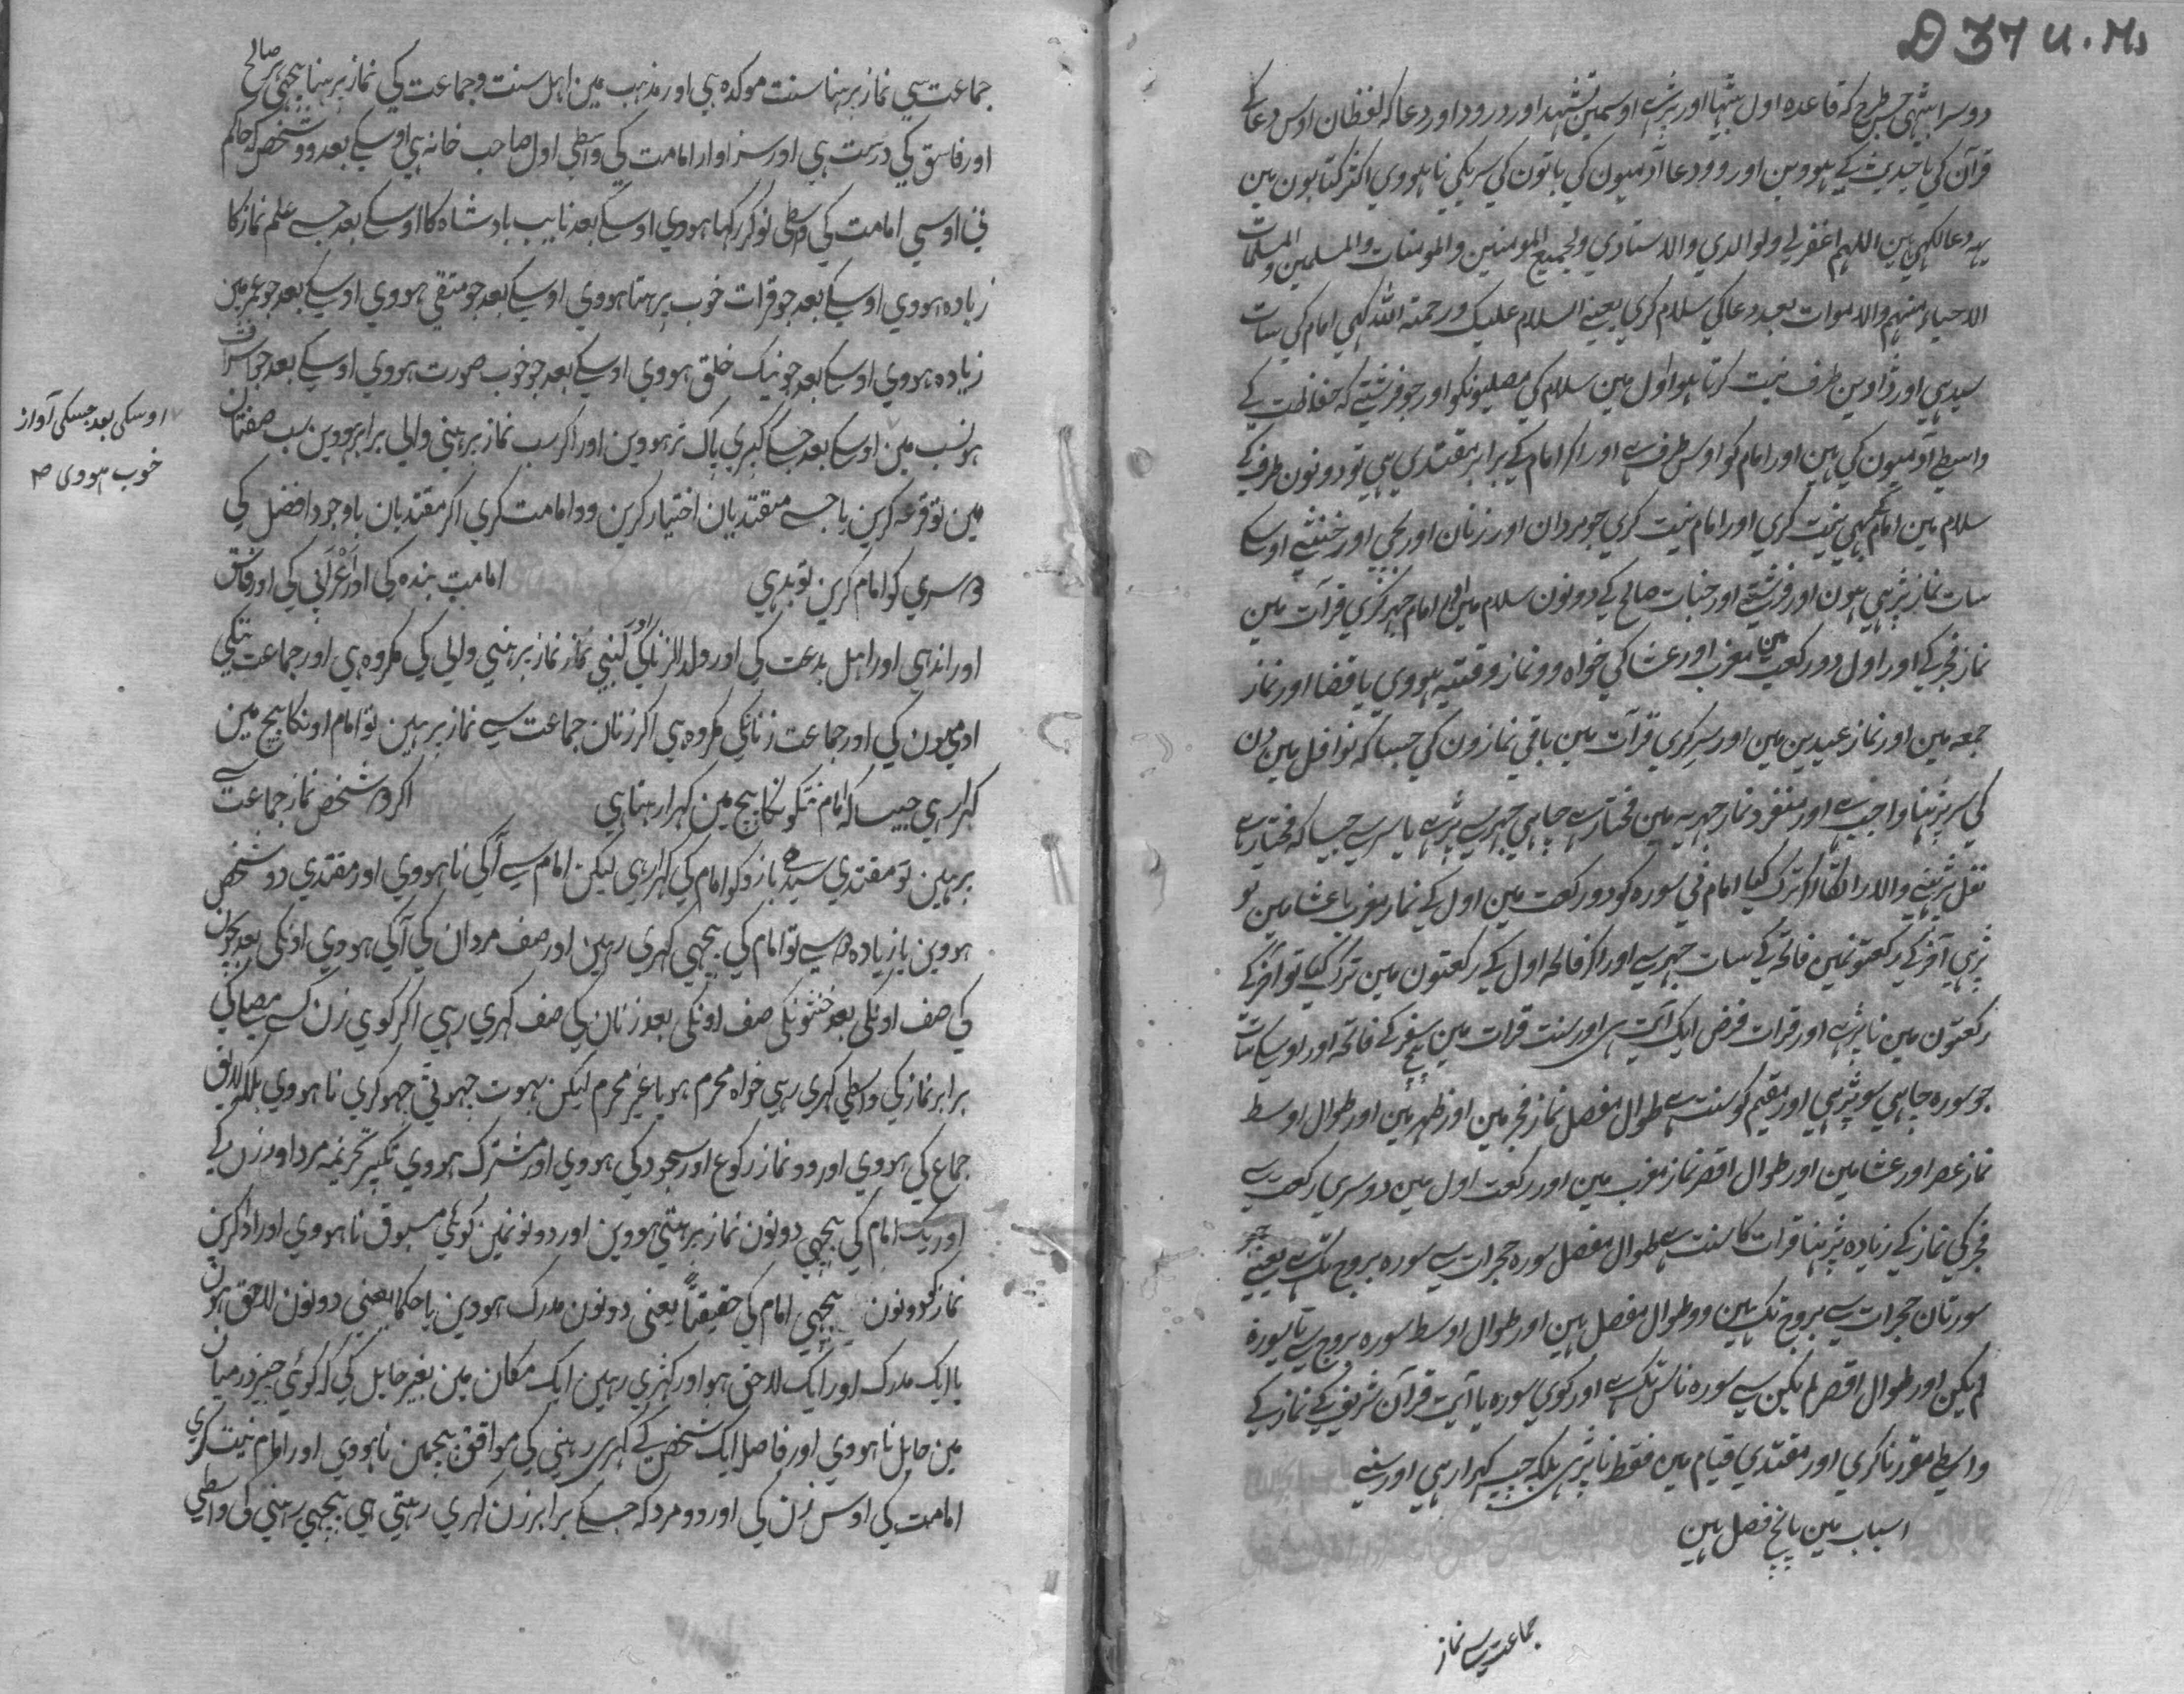 D 37 U. Ms
دوسرا بیٹہی جس طرح کہ قاعدہ اول بیٹہا اور پڑہے اوسمین تشہد اور درود اور دعا کہ لفظان اوس دعا کے
قرآن کی یا حدیث کے ہووین اور وو دعا آدمیون کی باتون کی سریکی نا ہووی اکثر کتابون مین
یہہ دعا لکہی ہین اللہم اغفرلی ولوالدی والاستادی ولجمیع المومنین والمومنات والمسلمین والمسلمات
الاحیاء منہم والاموات بعد دعا کی سلام کری یعنے السلام علیک ورحمتہ اللہ کہی امام کی سات
سیدہی اور ڈاوین طرف نیت کرتا ہوا اول مین سلام کی مصلیونکو اور جو فرشتے کہ حفاظت کے
واسطے آدمیون کی ہین اور امام کو اوس طرف سے اور اگر امام کے برابر مقتدی ہی تو دونون طرف کے
سلام مین امام کہی نیت کری اور امام نیت کری جو مردان اور زنان اور بچی اور خنثی اوسکے
سات نماز پڑہی ہون اور فرشتے اور جنات صالح کے دونون سلام مین امام جہر کری قرآت مین
نماز فجر کے اور اول دو رکعت مین مغرب اور عشا کی خواہ وو نماز وقتیہ ہووی یا قضا اور نماز
جمعہ مین اور نماز عیدین مین اور سر کری قرآت مین باقی نمازون کی جیسا کہ نوافل مین دن
کی سر پڑہنا واجب ہے اور منفرد نماز جہریہ مین مختار ہے چاہی جہر سے پڑہے یا سر سے جیسا کہ مختار ہے
نفل پڑہنے والا رات کا اگر ترک کیا امام نی سورہ کو دو رکعت مین اول کے نماز مغرب یا عشا مین تو
پڑہی آخر کے رکعتونمین فاتحہ کے سات جہر سے اور اگر فاتحہ اول کے رکعتون مین ترک کیا تو آخر کے
رکعتون مین نا پڑہے اور قرات فرض ایک آیت ہی اور سنت قرات مین سفر کے فاتحہ اور اوسکے سات
جو سورہ چاہی سو پڑہی اور مقیم کو سنت ہے طوال مفصل نماز فجر مین اور ظہر مین اور طوال اوسط
نماز عصر اور عشا مین اور طوال اقصر نماز مغرب مین اور رکعت اول مین دوسری رکعت سے
فجر کی نماز کے زیادہ پڑہنا قرات کا سنت ہے طوال مفصل سورہ حجرات سے سورہ بروج تک ہے یعنے جو
سورتان حجرات سے بروج تک ہین وو طوال مفصل ہین اور طوال اوسط سورہ بروج سے تا سورہ
لم یکن اور طوال اقصر لم یکن سے سورہ ناس تک ہے اور کوی سورہ یا آیت قرآن شریف کے نماز کے
واسطے مقرر نا کری اور مقتدی قیام مین فقط نا پڑہی بلکہ چپ کہڑا رہی اور سنے
اسباب مین پانچ فصل ہین
جماعت سے نماز
جماعت سی نماز پرہنا سنت موکدہ ہی اور مذہب مین اہل سنت وجماعت کی نماز پرہنا پیچہی صالح
اور فاسق کی درست ہی اور سزاوار امامت کی واسطی اول صاحب خانہ ہی اوسکے بعد وو شخص کہ حاکم
نی اوسی امامت کی واسطی نوکر رکہا ہووی اوسکے بعد نایب بادشاہ کا اوسکے بعد جسے علم نماز کا
زیادہ ہووی اوسکے بعد جو قرات خوب پرہتا ہووی اوسکے بعد جو متقی ہووی اوسکے بعد جو عمر مین
زیادہ ہووی اوسکے بعد جو نیک خلق ہووی اوسکے بعد جو خوب صورت ہووی اوسکے بعد جو اشراف
ہو نسب مین اوسکے بعد جسکے کپری پاک تر ہووین اور اکر سب نماز پرہنی والی برابر ہووین سب صفتان
اوسکی بعد جسکی آواز
خوب ہووی
مین تو قرعہ کرین یا جسے مقتدیان اختیار کرین وو امامت کری اکر مقتدیان باوجود افضل کی
دوسری کو امام کرین تو بدہی امامت بندہ کی اور اعرابی کی اور فاسق
اور اندہی اور اہل بدعت کی اور ولد الزنا کی نماز پرہنی والی کی مکروہ ہی اور جماعت ننکی
ادمیون کی اور جماعت زنانکی مکروہ ہی اکر زنان جماعت سے نماز پرہین تو امام اونکا بیچ مین
کہرا رہی جیسا کہ امام ننکونکا بیچ مین کہرا رہتا ہی اکر دو شخص نماز جماعت سے
پرہین تو مقتدی سیدہی بازو کو امام کی کہرا رہی لیکن امام سے آکی نا ہووی اور مقتدی دو شخص
ہووین یا زیادہ دو سے تو امام کی پیچہی کہری رہین اور صف مردان کی آکی ہووی اونکی بعد بچون
کی صف اونکی بعد خنثونکی صف اونکی بعد زنان کی صف کہری رہی اکر کوی زن کسے مصلی کی
برابر نماز کی واسطی کہری رہی خواہ محرم ہو یا غیر محرم لیکن بہوت جہوتی جہوکری نا ہووی بلکہ لایق
جماع کی ہووی اور وو نماز رکوع اور سجود کی ہووی اور مشترک ہووی تکبیر تحریمہ مرد اور زن کے
اور یک امام کی پیچہی دونون نماز پرہتی ہووین اور دونونمین کوئی مسبوق نا ہووی اور ادا کرین
نماز کو دونون پیچہی امام کی حقیقتاً یعنی دونون مدرک ہووین یا حکما یعنی دونون لاحق ہون
یا ایک مدرک اور ایک لاحق ہو اور کہری رہین ایک مکان مین بغیر حایل کی کہ کوئی چیز درمیان
مین حایل نا ہووی اور فاصلہ ایک شخص کے کہری رہنی کی موافق بیچمین نا ہووی اور امام نیت کری
امامت کی اوس زن کی اور وو مرد کہ جسکے برابر زن کہری رہتی ہی پیچہی رہنی کی واسطی